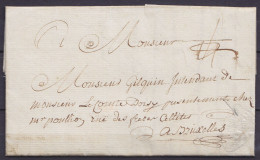 A Monsieur
Monsieur Gilquin Intendant de
monsieur Le Comte Dorsey presentement chez
mr poulho, rue des frere allites
a Bruxelles